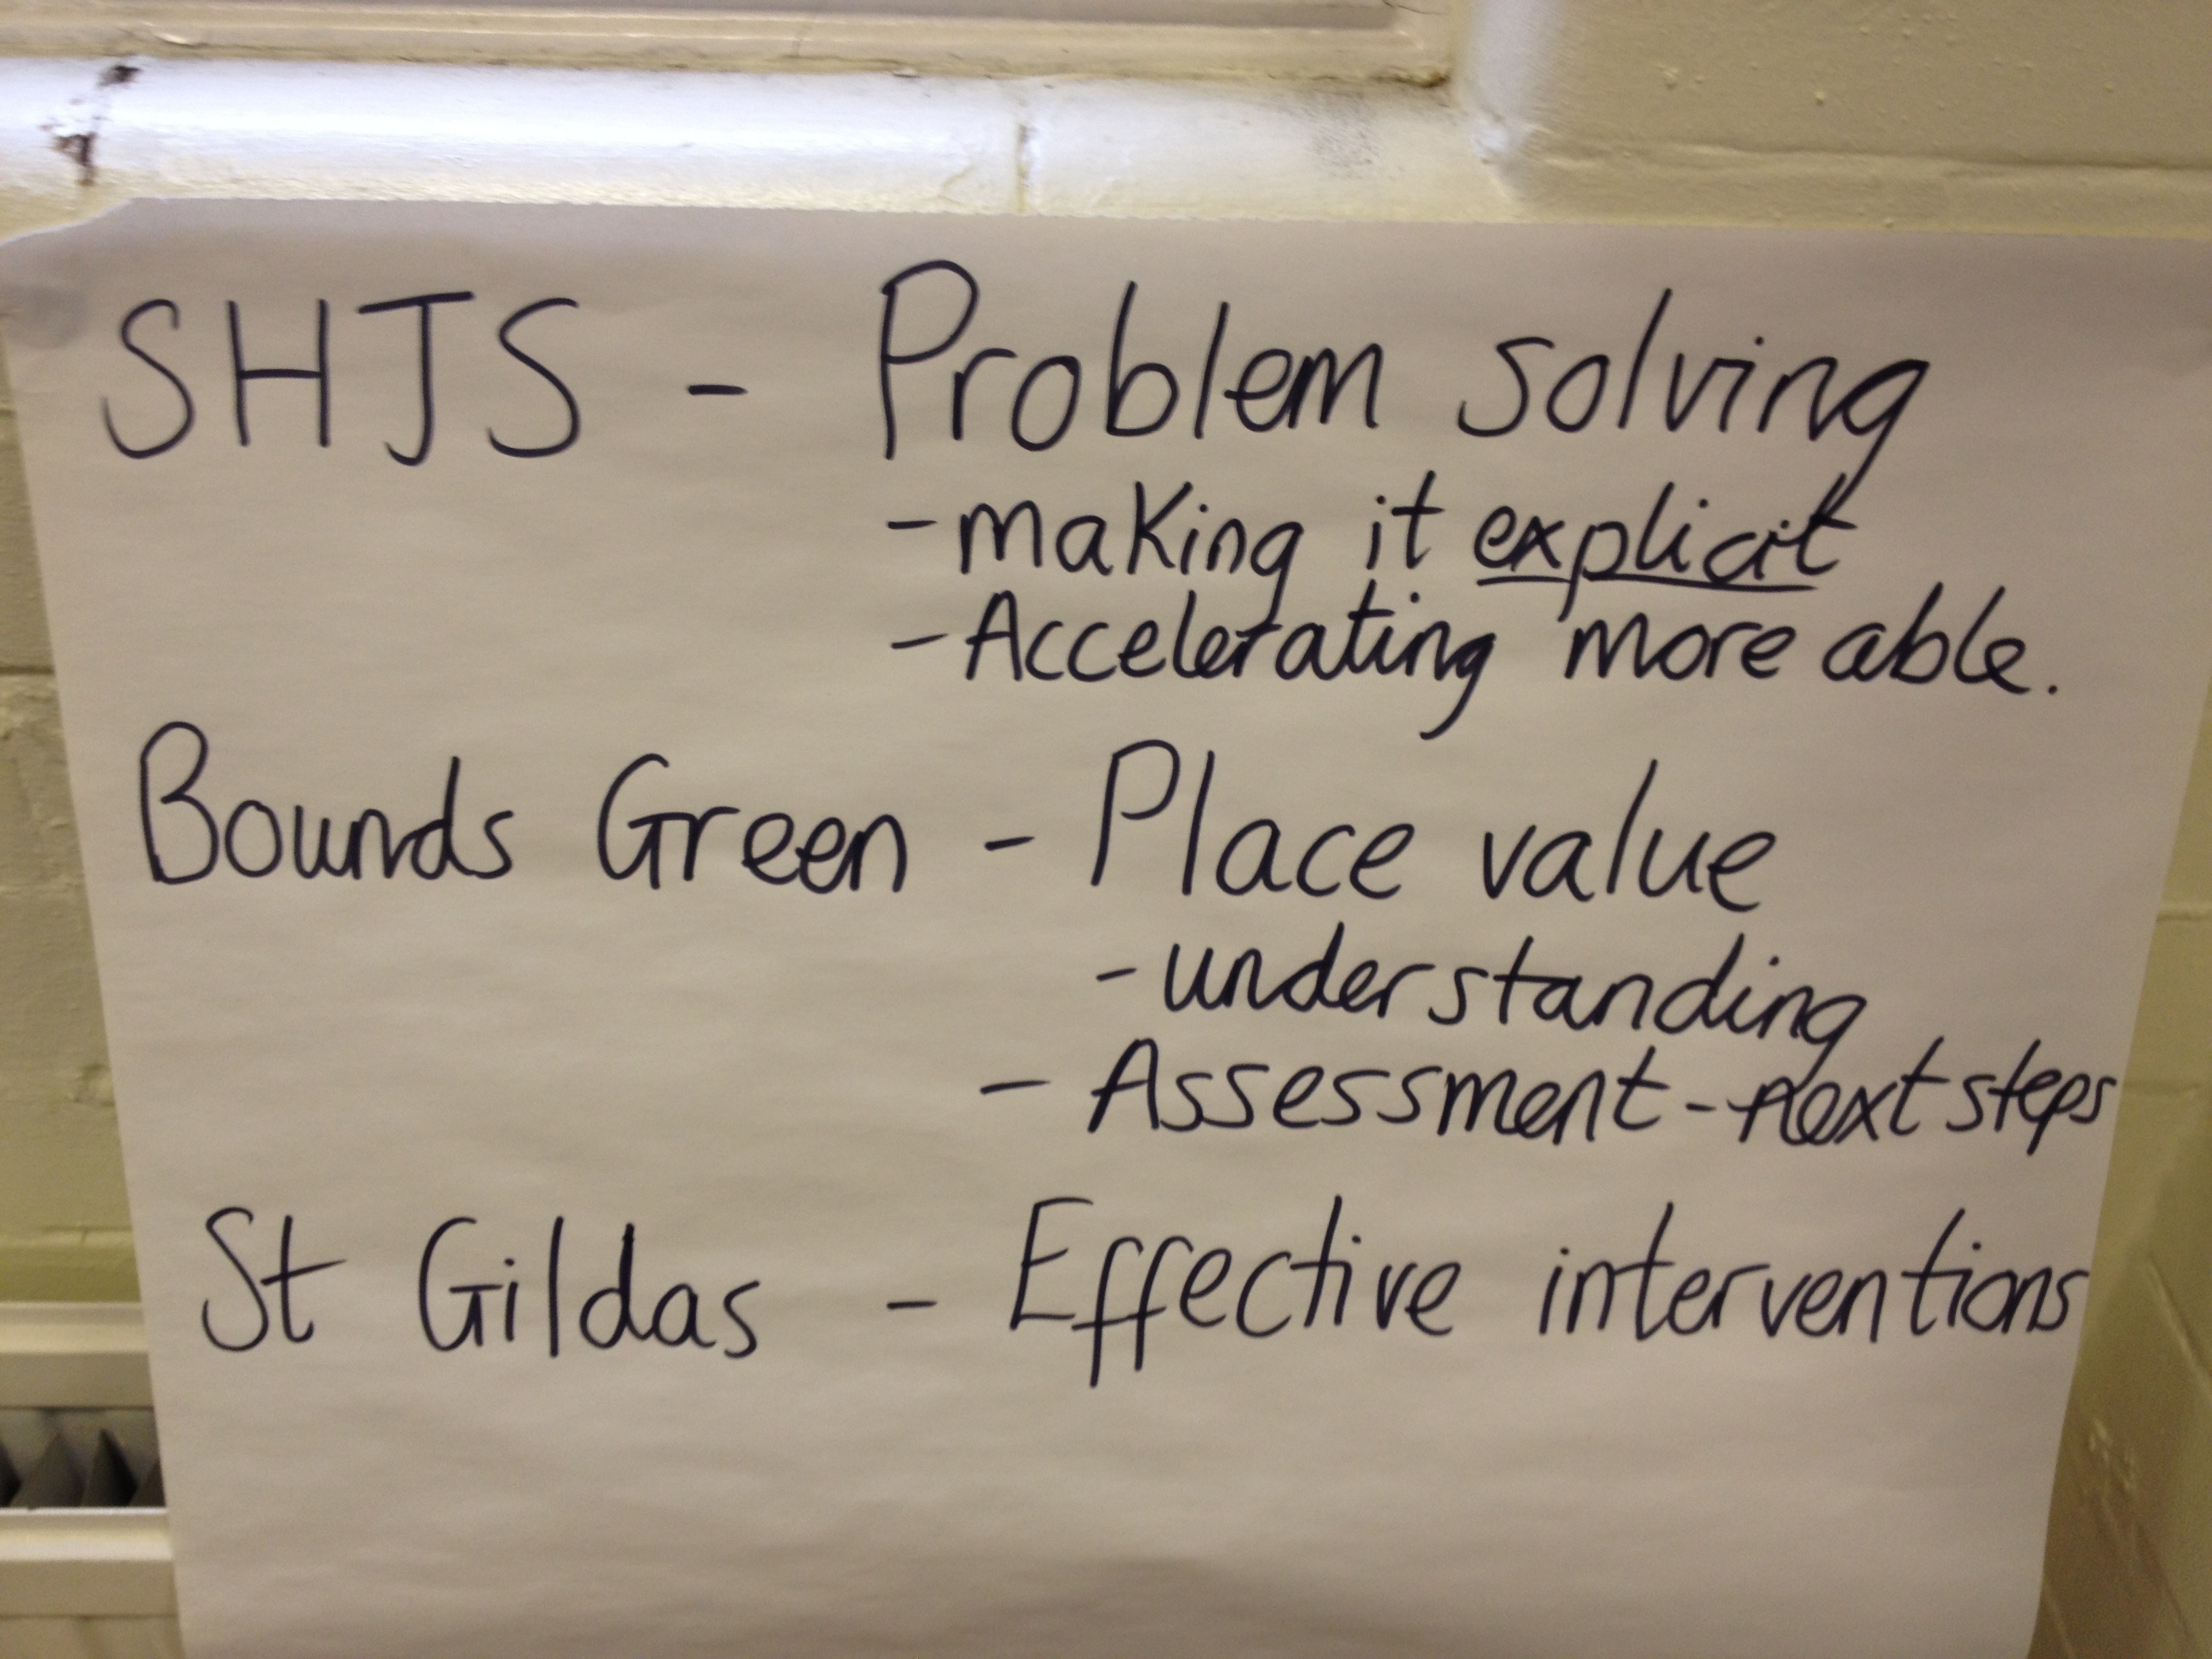 SHJS - Problem solving
- making it explicit
- Accelerating more able.
Bounds Green - Place value
- understanding
- Assessment - next steps
St Gildas - Effective interventions